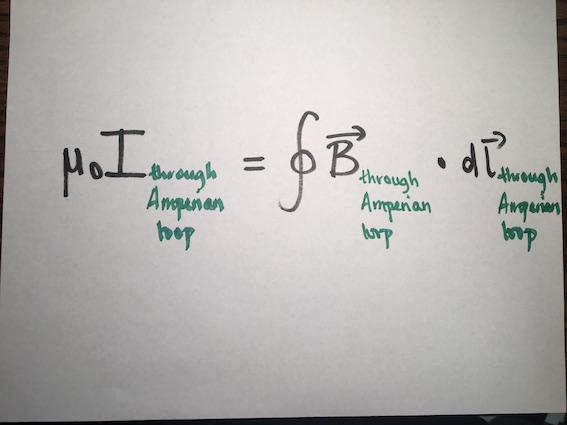 μ₀I through Amperian loop = ∮ B⃗ through Amperian loop · dl⃗ through Amperian loop